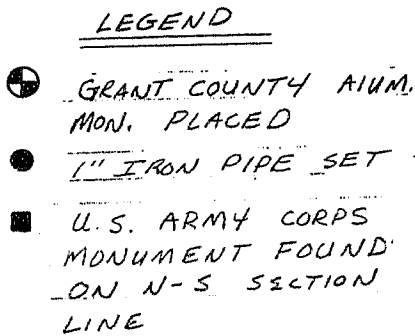 LEGEND
GRANT COUNTY AlUM.
MON. PLACED
1" IRON PIPE SET
U.S. ARMY CORPS
MONUMENT FOUND
ON N-S SECTION
LINE